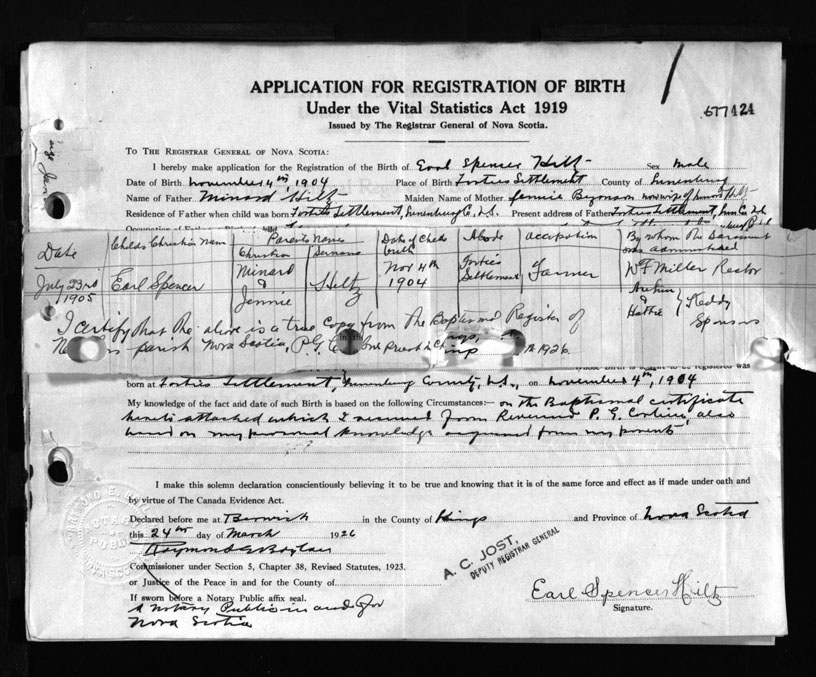 APPLICATION FOR REGISTRATION OF BIRTH
Under the Vital Statistics Act 1919
Issued by The Registrar General of Nova Scotia.
577424
TO THE REGISTRAR GENERAL OF NOVA SCOTIA:
I hereby make application for the Registration of the Birth of Earl Spencer Hiltz Sex male
Date of Birth November 4th, 1904 Place of Birth Forties Settlement County of Lunenburg
Name of Father Minard Hiltz Maiden Name of Mother Jennie
Residence of Father when child was born Forties Settlement, Lunenburg Co., N.S. Present address of Father Forties Settlement,
Date Childs Christian Name Parents Names Date of Childs birth Abode occupation By whom the Sacrament was administered
Christian Surname
July 23rd 1905 Earl Spencer Minard & Jennie Hiltz Nov 4th 1904 Forties Settlement Farmer W F Miller Rector
& Hattie Keddy Sponsors
I certify that the above is a true copy from the Baptismal Register of
parish Nova Scotia, P.G. 1926
born at Forties Settlement, Lunenburg County, N.S., on November 4th, 1904
My knowledge of the fact and date of such Birth is based on the following Circumstances:— on the Baptismal certificate
hereto attached which I received from Reverend P. G. also
based on my personal knowledge acquired from my parents
I make this solemn declaration conscientiously believing it to be true and knowing that it is of the same force and effect as if made under oath and
by virtue of The Canada Evidence Act.
Declared before me at Berwick in the County of Kings and Province of Nova Scotia
this 24th day of March 1926
Raymond E
Commissioner under Section 5, Chapter 38, Revised Statutes, 1923.
or Justice of the Peace in and for the County of
If sworn before a Notary Public affix seal.
A Notary Public in and for
Nova Scotia
A. C. JOST,
DEPUTY REGISTRAR GENERAL
Earl Spencer Hiltz
Signature.